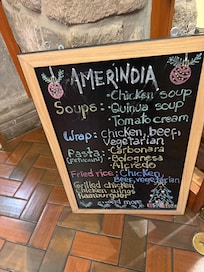 AMERINDIA
Soups: · Chicken soup
· Quinua soup
· Tomato cream
Wrap: Chicken, beef,
vegetarian
Pasta: · Carbonara
· Bolognesa
· Alfredo
Fried rice: Chicken,
Beef, vegetarian
Grilled chicken
Chicken wings
Hamburguer
and more